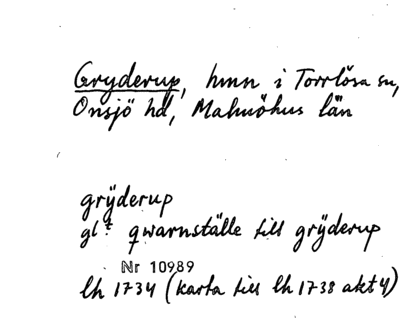 Gryderup, hmn i Torrlösa sn,
Onsjö hd, Malmöhus län
grÿderup
gl t qwarnställe till grÿderup
Nr 10989
lh 1734 (karta till lh 1738 akt 4)